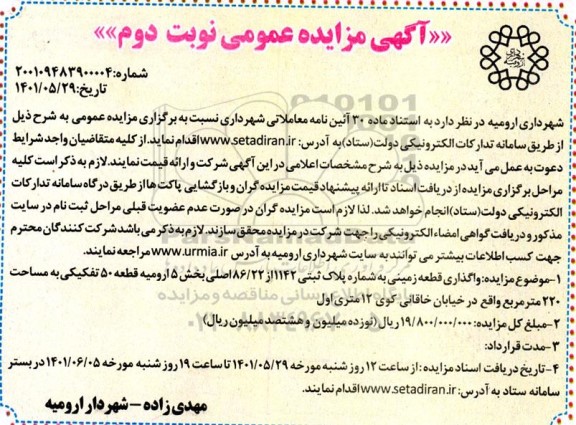 ««آگهی مزایده عمومی نوبت دوم»»
شماره:۲۰۰۱۰۹۴۸۳۹۰۰۰۰۴
تاریخ:۱۴۰۱/۰۵/۲۹
شهرداری ارومیه در نظر دارد به استناد ماده ۳۰ آئین نامه معاملاتی شهرداری نسبت به برگزاری مزایده عمومی به شرح ذیل
از طریق سامانه تدارکات الکترونیکی دولت(ستاد)به آدرس: www.setadiran.ir اقدام نماید.از کلیه متقاضیان واجد شرایط
دعوت به عمل می آید در مزایده ذیل به شرح مشخصات اعلامی در این آگهی شرکت و ارائه قیمت نمایند.لازم به ذکر است کلیه
مراحل برگزاری مزایده از دریافت اسناد تا ارائه پیشنهاد قیمت مزایده گران و بازگشایی پاکت ها از طریق درگاه سامانه تدارکات
الکترونیکی دولت(ستاد)انجام خواهد شد. لذا لازم است مزایده گران در صورت عدم عضویت قبلی مراحل ثبت نام در سایت
مذکور و دریافت گواهی امضاء الکترونیکی را جهت شرکت در مزایده محقق سازند. لازم به ذکر می باشد شرکت کنندگان محترم
جهت کسب اطلاعات بیشتر می توانند به سایت شهرداری ارومیه به آدرس www.urmia.ir مراجعه نمایند.
۱-موضوع مزایده:واگذاری قطعه زمینی به شماره پلاک ثبتی ۱۱۴۲از ۸۶/۲۲اصلی بخش ۵ ارومیه قطعه ۵۰ تفکیکی به مساحت
۲۲۰ مترمربع واقع در خیابان خاقانی کوی ۱۲ متری اول
۲-مبلغ کل مزایده:۱۹/۸۰۰/۰۰۰/۰۰۰ ریال (نوزده میلیون و هشتصد میلیون ریال)
۳-مدت قرارداد:
۴-تاریخ دریافت اسناد مزایده: از ساعت ۱۲ روز شنبه مورخه ۱۴۰۱/۰۵/۲۹ تا ساعت ۱۹ روز شنبه مورخه ۱۴۰۱/۰۶/۰۵ در بستر
سامانه ستاد به آدرس: www.setadiran.ir اقدام نمایند.
مهدی زاده – شهردار ارومیه